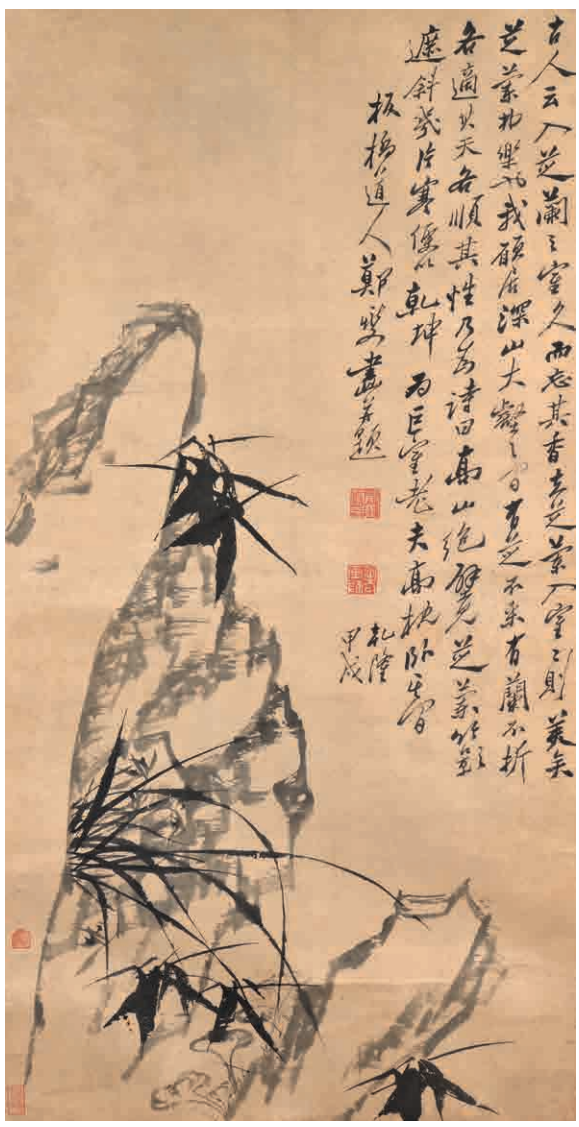 古人云入芝蘭之室久而忘其香夫芝蘭入室室則美矣
芝蘭勿樂也我願居深山大壑之間有芝不采有蘭不折
各適其天各順其性乃為詩曰高山絕壁見芝蘭竹影
遮斜幾片寒便以乾坤為巨室老夫高枕臥其間
板橋道人鄭燮畫并題
乾隆
甲戌